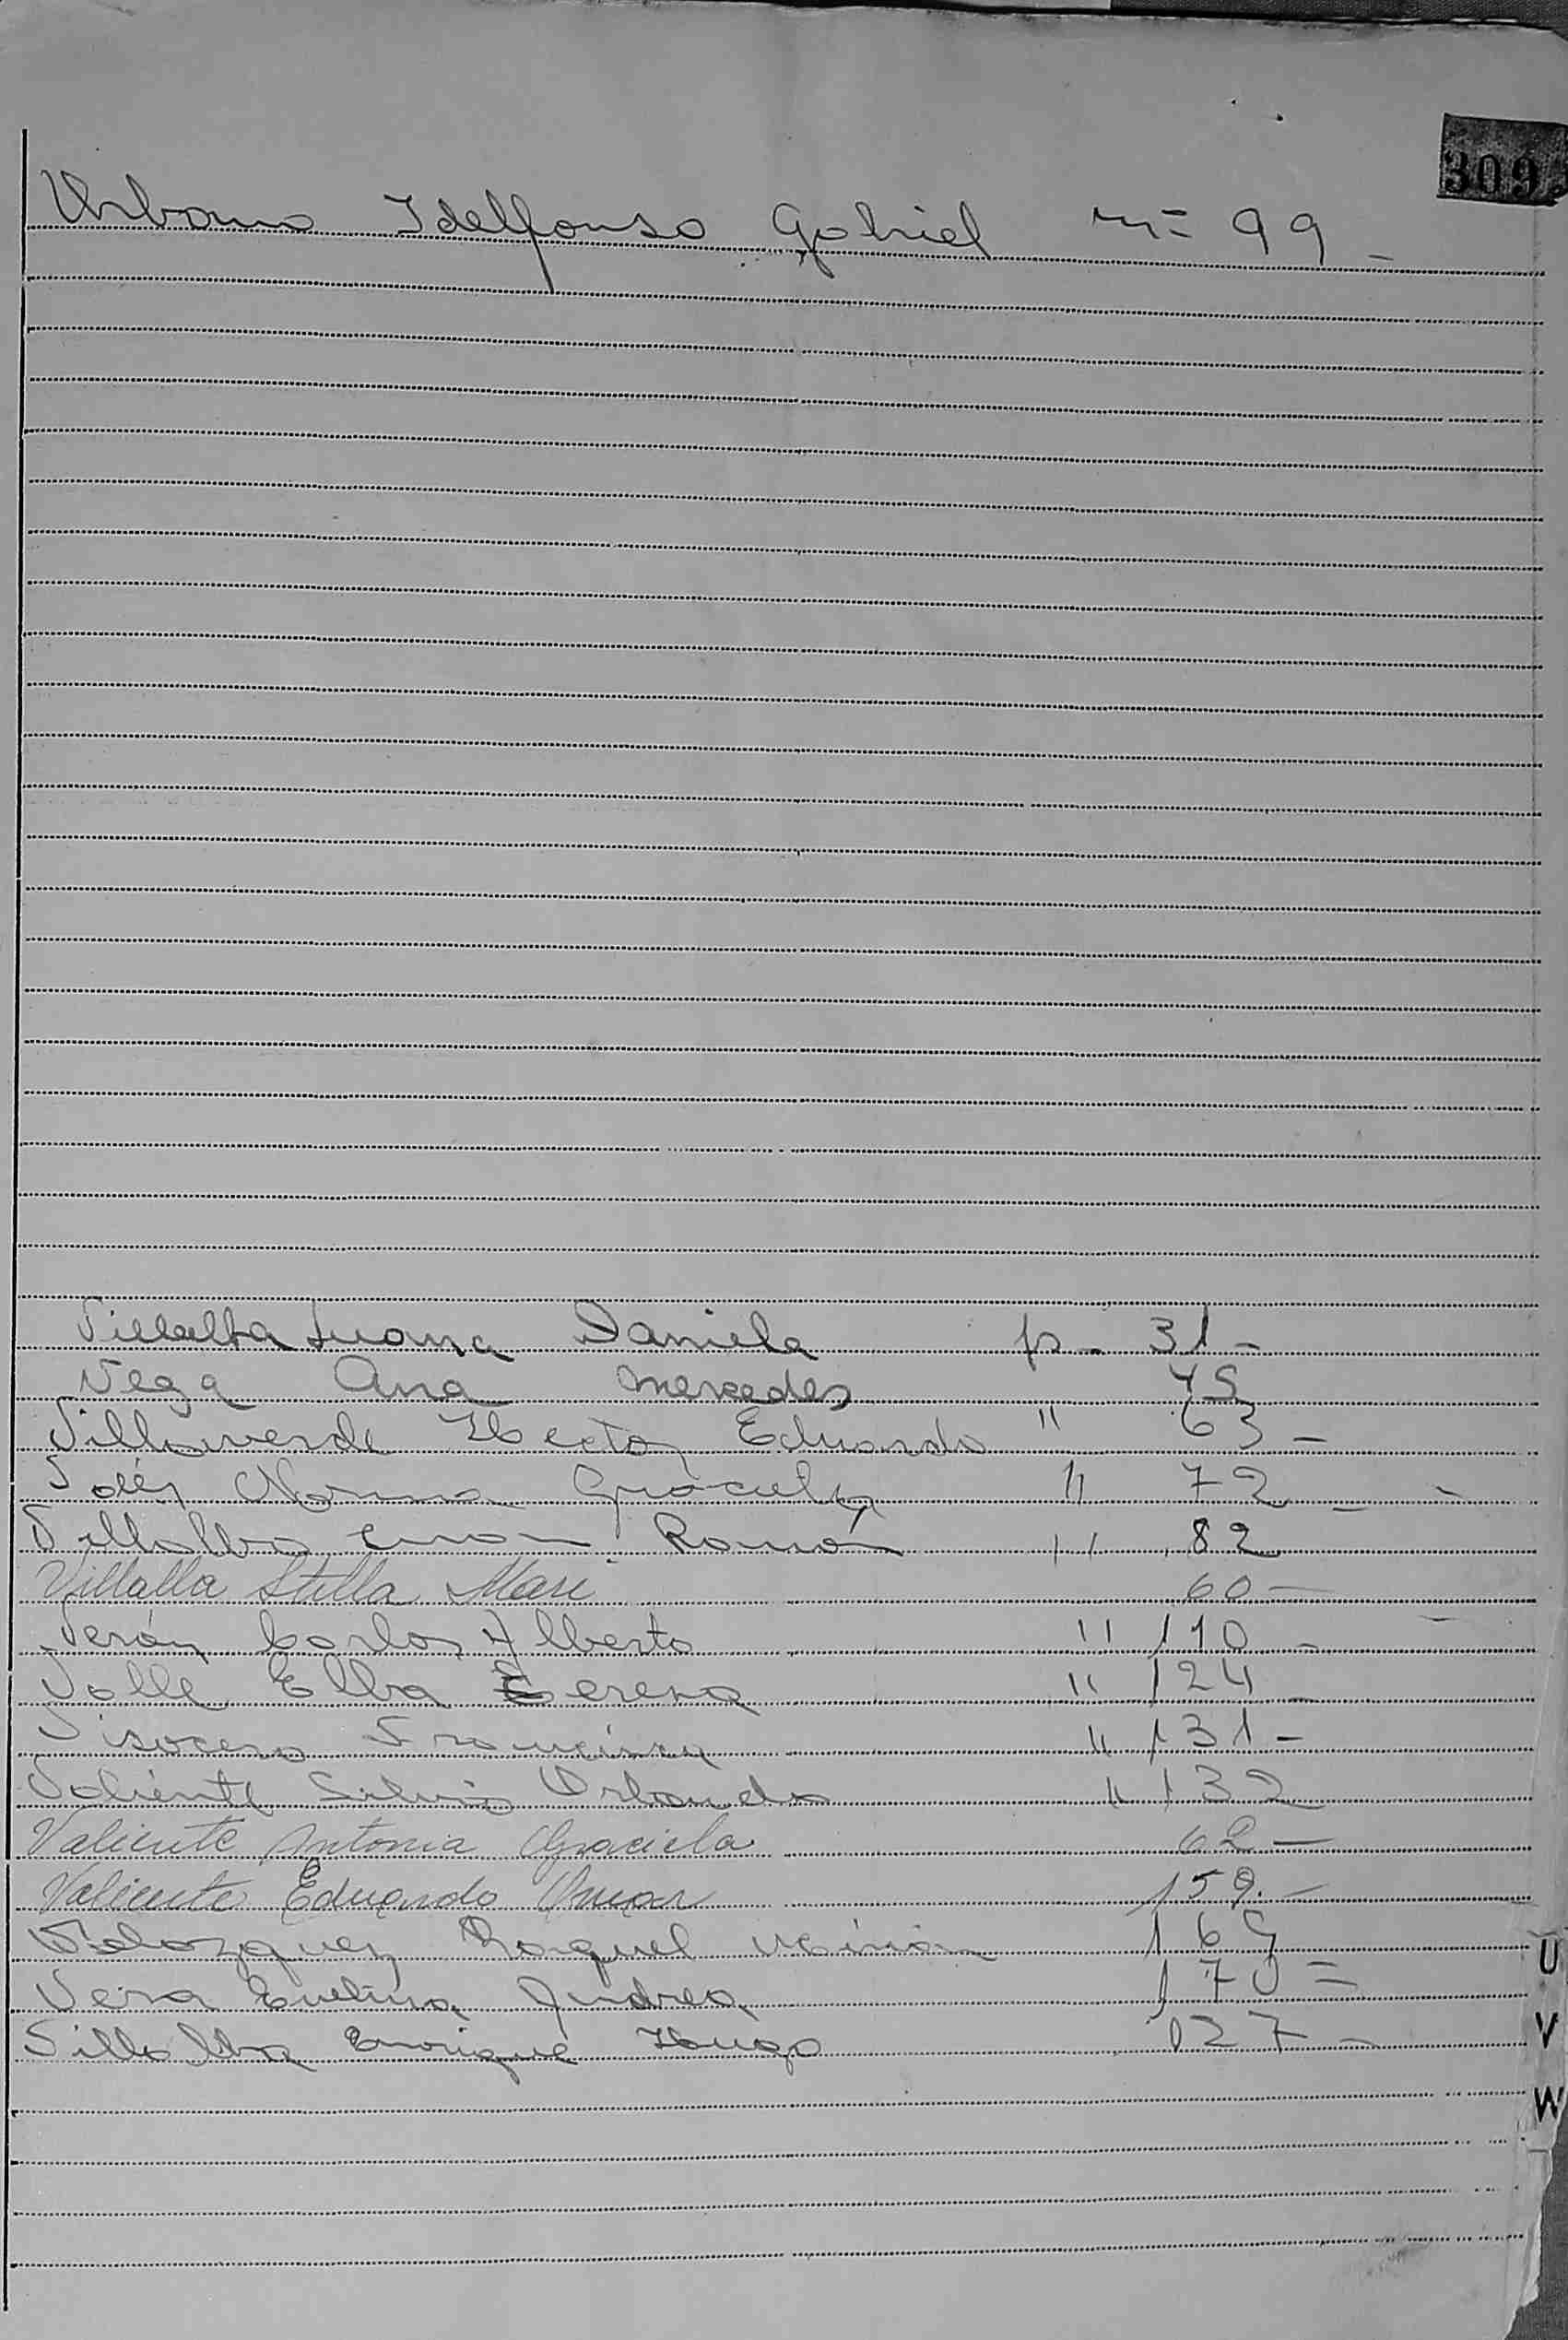 309
Urbano Idelfonso Gabriel nº 99 -
Villalba Juana Daniela fº - 31 -
Vega Ana Mercedes 45
Villaverde Hector Eduardo " 63 -
Norma Graciela " 72 -
Villalba Ramón " 82
Villalba Stella Mari 60 -
Verón Carlos Alberto " 110 -
Valle Elba Teresa " 124 -
Francisca " 131 -
Valiente Silvio Orlando " 132
Valiente Antonia Graciela 62 -
Valiente Eduardo Omar 159. -
Velazquez Raquel Miriam 1
Vera Evelina Andrea 170 =
Villalba Enrique Hugo 127 -
U
V
W